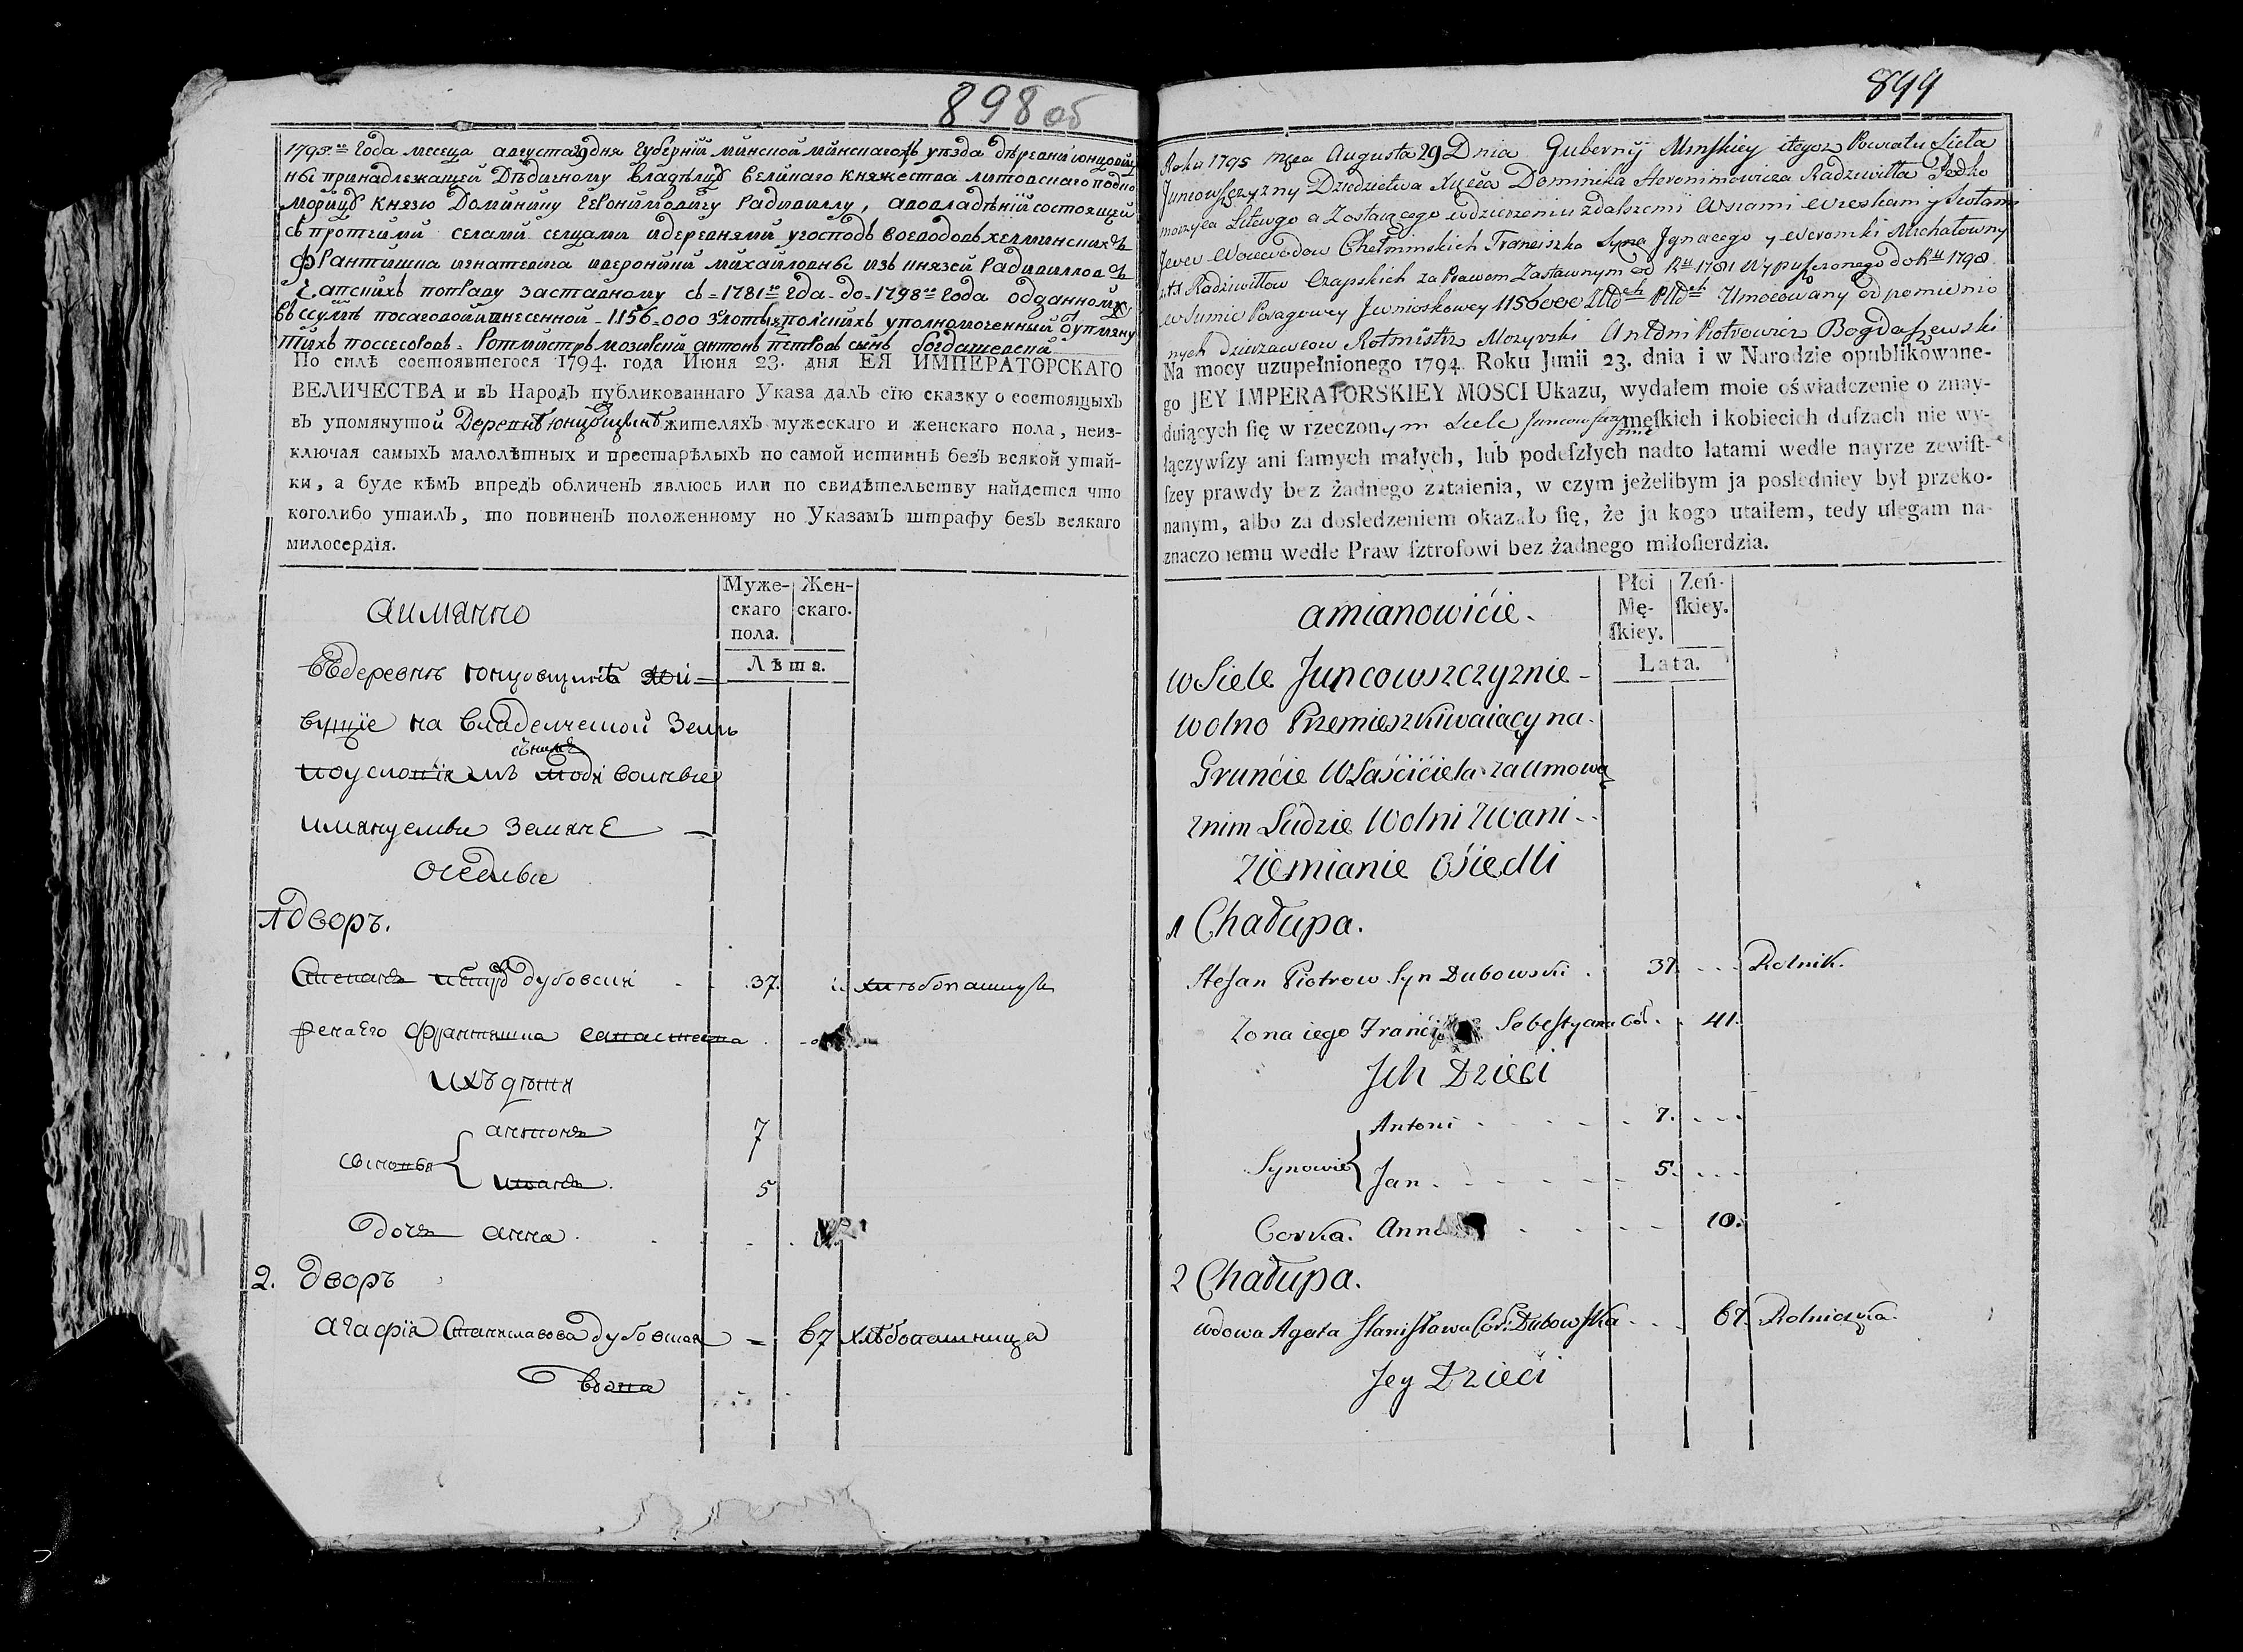 898 об
1795.го года месеца августа 29 дня Губерніи минской минскаго уѣзда дѣревни юнцовщи
ны принадлежащей Дѣдичному владѣлцу великаго княжества литовскаго подко
морицу князю Доминику Геронимовичу Радивиллу, а во владѣніи состоящей
съ протчими селами селцами и деревнями у господъ воеводовъ хелминскихъ
Франтишка игнатевича и вероники михайловны изъ князей Радивиллов
Чапскихъ по праву заставному съ = 1781го года до = 1798го года отданному
въ сумѣ посаговой и внесенной = 1156.000 злотыхъ полскихъ уполномоченный от упмяну
тихъ поссесоровъ Ротмистръ мозирски антонъ петровъ сынъ богдашевски
По силѣ состоявшегося 1794. года Июня 23. дня ЕЯ ИМПЕРАТОРСКАГО
ВЕЛИЧЕСТВА и въ Народъ публикованнаго Указа далъ сїю сказку о состоящыхъ
въ упомянутой Деревнѣ юнцовщинѣ жителяхъ мужескаго и женскаго пола, неиз-
ключая самыхъ малолѣтныхъ и престарѣлыхъ по самой истиннѣ безъ всякой утай-
ки, а буде кѣмъ впредъ обличенъ явлюсь или по свидѣтельству найдется что
коголибо утаилъ, то повиненъ положенному по Указамъ штрафу безъ всякаго
милосердїя.
а имянно
Муже-
скаго
пола.
Жен-
скаго.
Лѣта.
Въ деревнѣ юнцовщинѣ жи=
вущїе на владелческой земли
по условїямъ съ нимъ люди волные
имянуемые земяне
оседлые
1 дворъ.
Степанъ петровъ дубовски 37. хлѣбопашцъ
жена его Франтишка савастиева
ихъ дѣти
сыновья { антонъ 7
иванъ. 5
дочь анна.
2. дворъ
агафїя Станиславова дубовская = 67 хлѣбопашница
вдова
899
Roku 1795 Mca Augusta 29 Dnia Gubernij Minskiey itegoż Powiatu Sieła
Juncowszczyzny Dziedzictwa Xcia Dominika Heronimowicza Radziwiłła Podko
morzyca Littwgo a Zostaiącego w dzierżeniu z dalszemi Wsiami
Jwev Woiewodow Chełminskich Franciszka Syna Jgnacego y Weroniki Michałowny
z XX Radziwiłłow Czapskich za Prawem Zastawnym od Rku 1781 Wypuszczonego do Rku 1798
w Sumie Posagowey Jwnioskowey 1156000 Złtch Płlch Umocowany od pomienio
nych dzierżawcow Rotmistrz Mozyrski Antoni Piotrowicz Bogdaszewski
Na mocy uzupełnionego 1794. Roku Junii 23. dnia i w Narodzie opublikowane-
go JEY IMPERATORSKIEY MOSCI Ukazu, wydałem moie oświadczenie o znay-
duiących ſię w rzeczonym Siele Juncowszczyznie męſkich i kobiecich duſzach nie wy-
łączywſzy ani ſamych małych, lub podeſzłych nadto latami wedle nayrze zewiſt-
ſzey prawdy bez żadnego zataienia, w czym jeżelibym ja posledniey był przeko-
nanym, albo za dosledzeniem okazało ſię, że ja kogo utaiłem, tedy ulegam na-
znaczonemu wedle Praw ſztrofowi bez żadnego miłoſierdzia.
amianowićie.
Płci
Mę-
ſkiey.
Zeń-
ſkiey.
Lata.
w Siele Juncowszczyznie -
wolno Przemieszkiwaiący na.
Grunćie Właśćićiela za Umową
znim Ludzie Wolni Zwani -
Ziemianie Ośiedli
1 Chałupa.
Stefan Piotrow Syn Dubowski . 37. ... Rolnik.
Zona iego Franci Sebestyana Cór. . 41.
Jch Dzieći
Synowie { Antoni . . . . 7. ...
Jan . . . . 5. ...
Corka. Anna . . . 10.
2 Chałupa.
wdowa Agata Stanisława Cór. Dubowska . . . 67. Rolniczka.
Jey Dzieći